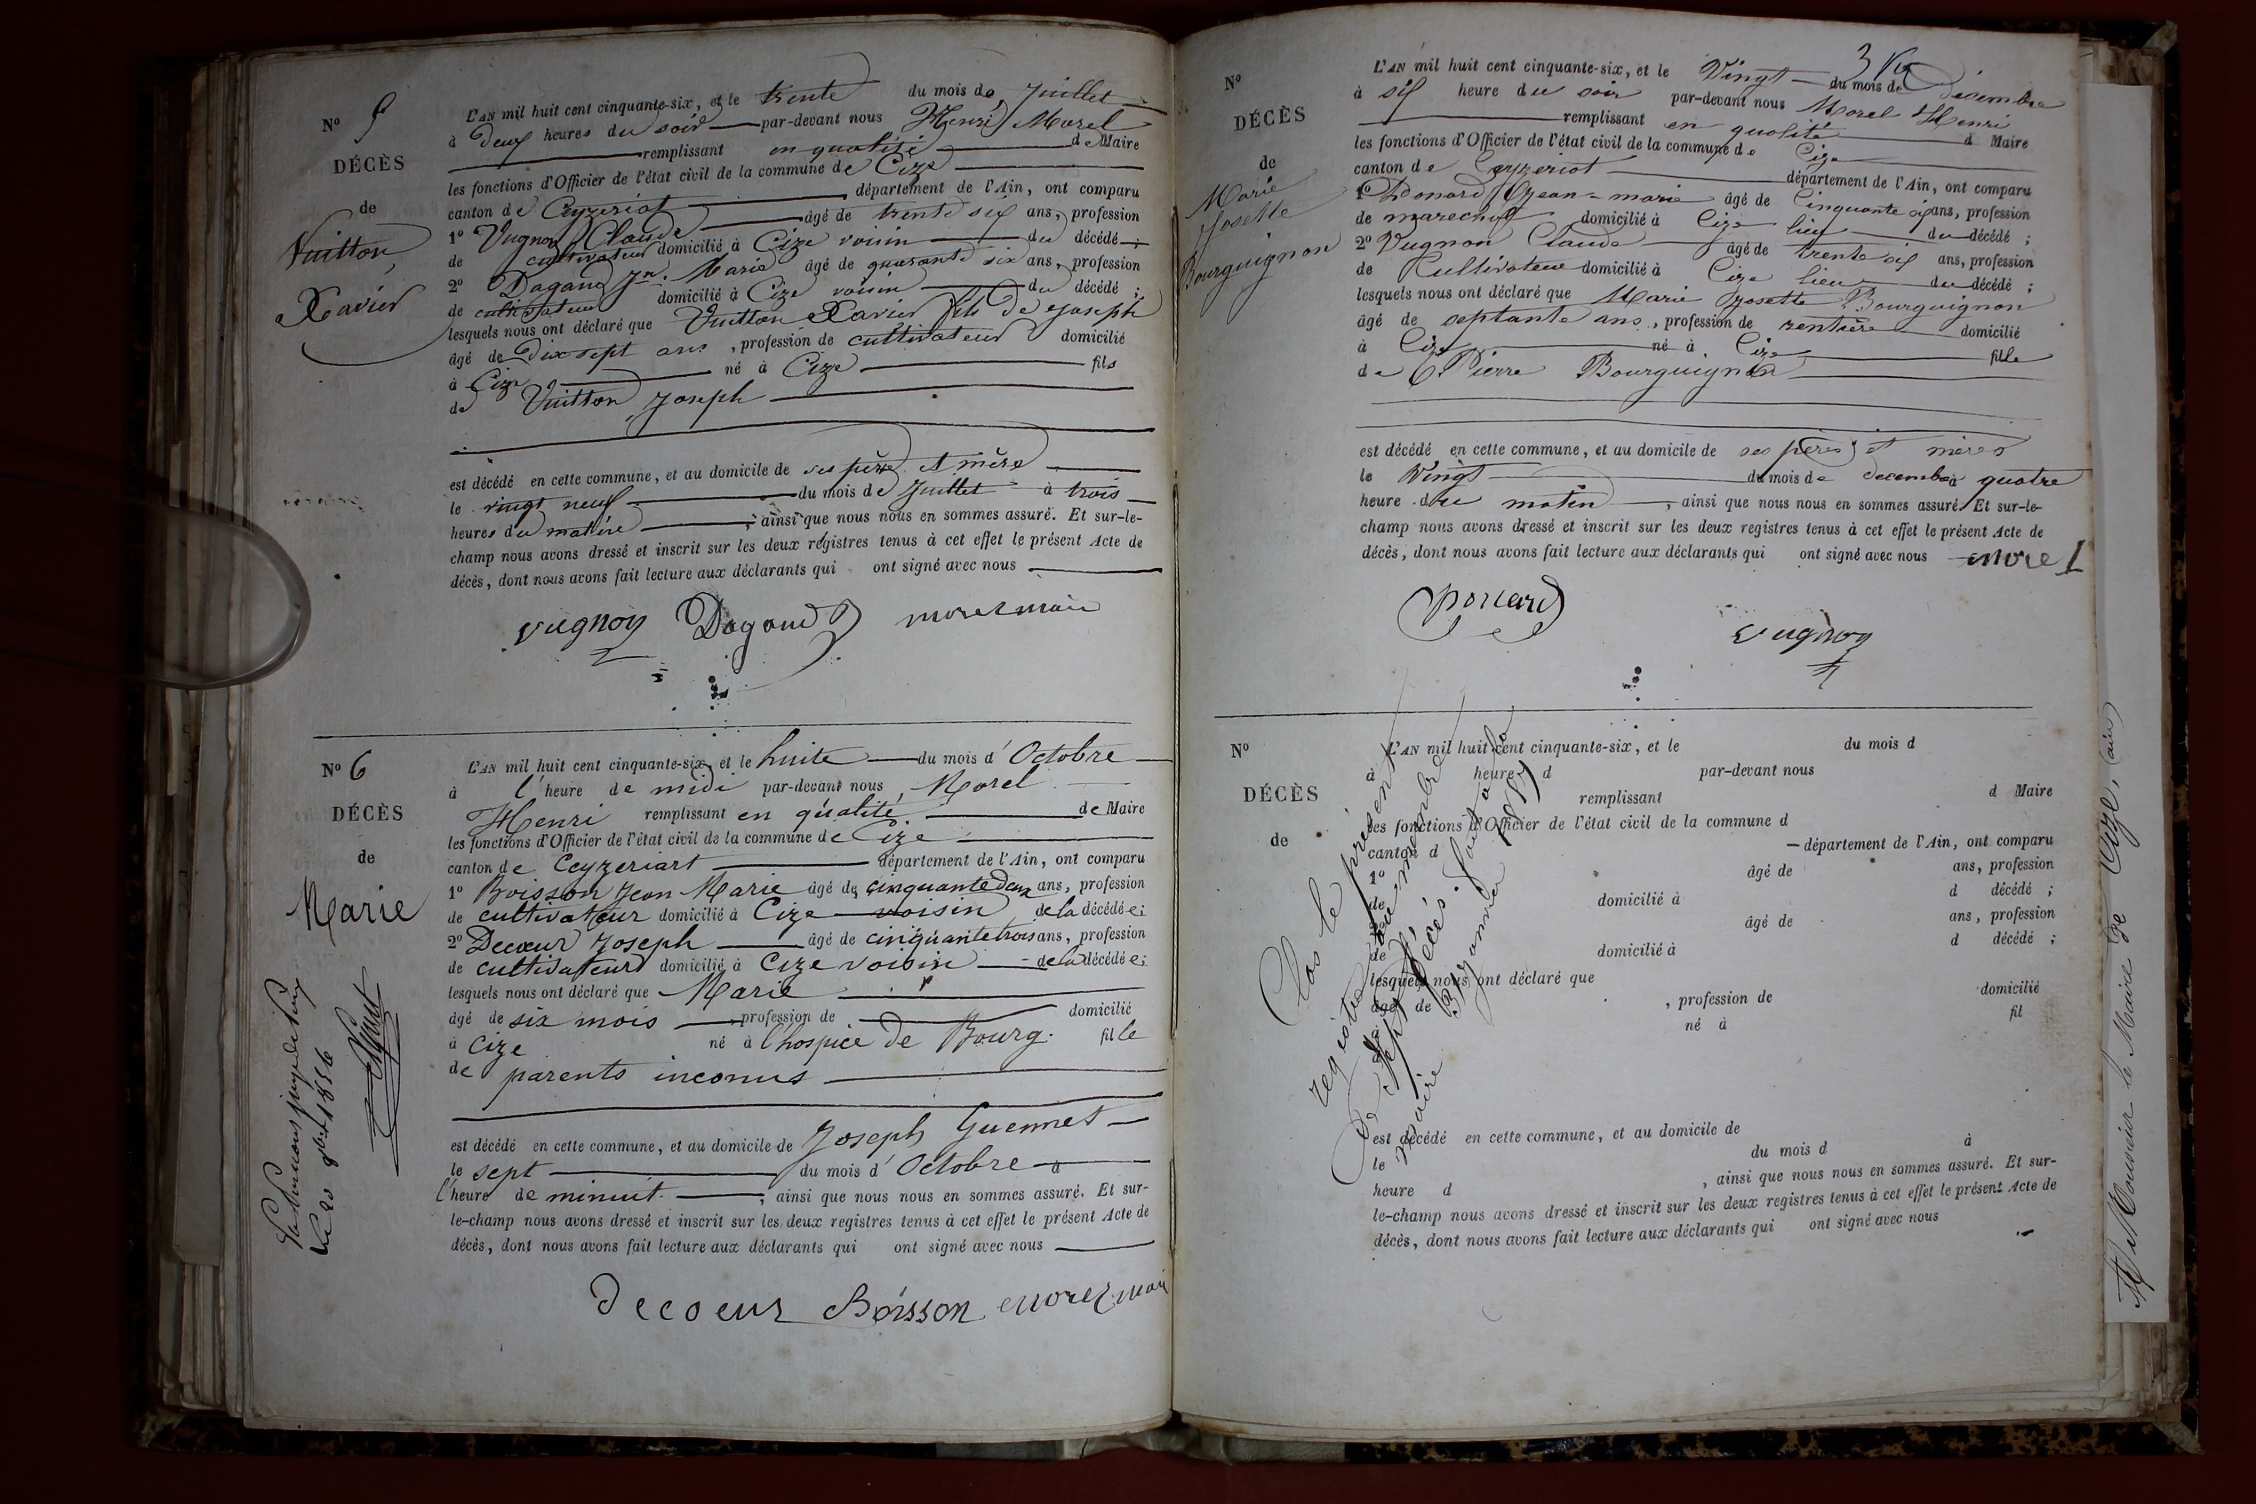 N° 5
DÉCÈS
de
Vuitton
Xavier
L'AN mil huit cent cinquante-six, et le trente du mois de Juillet
à Deux heures du soir par-devant nous Henri Morel
remplissant en qualité de Maire
les fonctions d'Officier de l'état civil de la commune de Cize
canton de Ceyzeriat département de l'Ain, ont comparu
1° Vugnon Claude âgé de trente six ans, profession
de cultivateur domicilié à Cize voisin du décédé ;
2° Dagand Jn. Marie âgé de quarante six ans, profession
de cultivateur domicilié à Cize voisin du décédé ;
lesquels nous ont déclaré que Vuitton Xavier fils de Joseph
âgé de Dix-sept ans, profession de cultivateur domicilié
à Cize né à Cize fils
de Vuitton Joseph
est décédé en cette commune, et au domicile de ses père et mère
le vingt neuf du mois de Juillet à trois
heures du matin ; ainsi que nous nous en sommes assuré. Et sur-le-
champ nous avons dressé et inscrit sur les deux registres tenus à cet effet le présent Acte de
décès, dont nous avons fait lecture aux déclarants qui ont signé avec nous
vugnon Dagand morel maire
N° 6
DÉCÈS
de
Marie
L'AN mil huit cent cinquante-six, et le huite du mois d'Octobre
à l'heure de midi par-devant nous, Morel
Henri remplissant en qualité de Maire
les fonctions d'Officier de l'état civil de la commune de Cize
canton de Ceyzeriart département de l'Ain, ont comparu
1° Boisson Jean Marie âgé de cinquante deux ans, profession
de cultivateur domicilié à Cize voisin de la décédée ;
2° Decoeur Joseph âgé de cinquante trois ans, profession
de cultivateur domicilié à Cize voisin de la décédée ;
lesquels nous ont déclaré que Marie
âgé de six mois profession de domicilié
à Cize né à l'hospice de Bourg. fille
de parents inconus
est décédé en cette commune, et au domicile de Joseph Guennet
le sept du mois d'Octobre à
l'heure de minuit. ; ainsi que nous nous en sommes assuré. Et sur-
le-champ nous avons dressé et inscrit sur les deux registres tenus à cet effet le présent Acte de
décès, dont nous avons fait lecture aux déclarants qui ont signé avec nous
decoeur Boisson morel maire
juge de paix
1856
N°
DÉCÈS
de
Marie
Josette
Bourguignon
L'AN mil huit cent cinquante-six, et le Vingt du mois de décembre
à six heure du soir par-devant nous Morel Henri
remplissant en qualité d Maire
les fonctions d'Officier de l'état civil de la commune de Cize
canton de Ceyzeriat département de l'Ain, ont comparu
1° Jean-marie âgé de Cinquante six ans, profession
de marechal domicilié à Cize lieu du décédé ;
2° Vugnon Claude âgé de trente six ans, profession
de Cultivateur domicilié à Cize lieu du décédé ;
lesquels nous ont déclaré que Marie Josette Bourguignon
âgé de septante ans, profession de rentière domicilié
à Cize né à Cize fille
de Pierre Bourguignon
est décédé en cette commune, et au domicile de ses pères et mères
le Vingt du mois de decembre à quatre
heure du matin, ainsi que nous nous en sommes assuré. Et sur-le-
champ nous avons dressé et inscrit sur les deux registres tenus à cet effet le présent Acte de
décès, dont nous avons fait lecture aux déclarants qui ont signé avec nous morel
vugnon
N°
DÉCÈS
de
L'AN mil huit cent cinquante-six, et le du mois d
à heure d par-devant nous
remplissant d Maire
les fonctions d'Officier de l'état civil de la commune d
canton d département de l'Ain, ont comparu
1° âgé de ans, profession
de domicilié à d décédé ;
2° âgé de ans, profession
de domicilié à d décédé ;
lesquels nous ont déclaré que
âgé de , profession de domicilié
à né à fil
de
est décédé en cette commune, et au domicile de
le du mois d à
heure d , ainsi que nous nous en sommes assuré. Et sur-
le-champ nous avons dressé et inscrit sur les deux registres tenus à cet effet le présent Acte de
décès, dont nous avons fait lecture aux déclarants qui ont signé avec nous
Clos le présent
registre au nombre
de sept décès. fait à la
Maire
A Monsieur le Maire de Cize, (Ain)